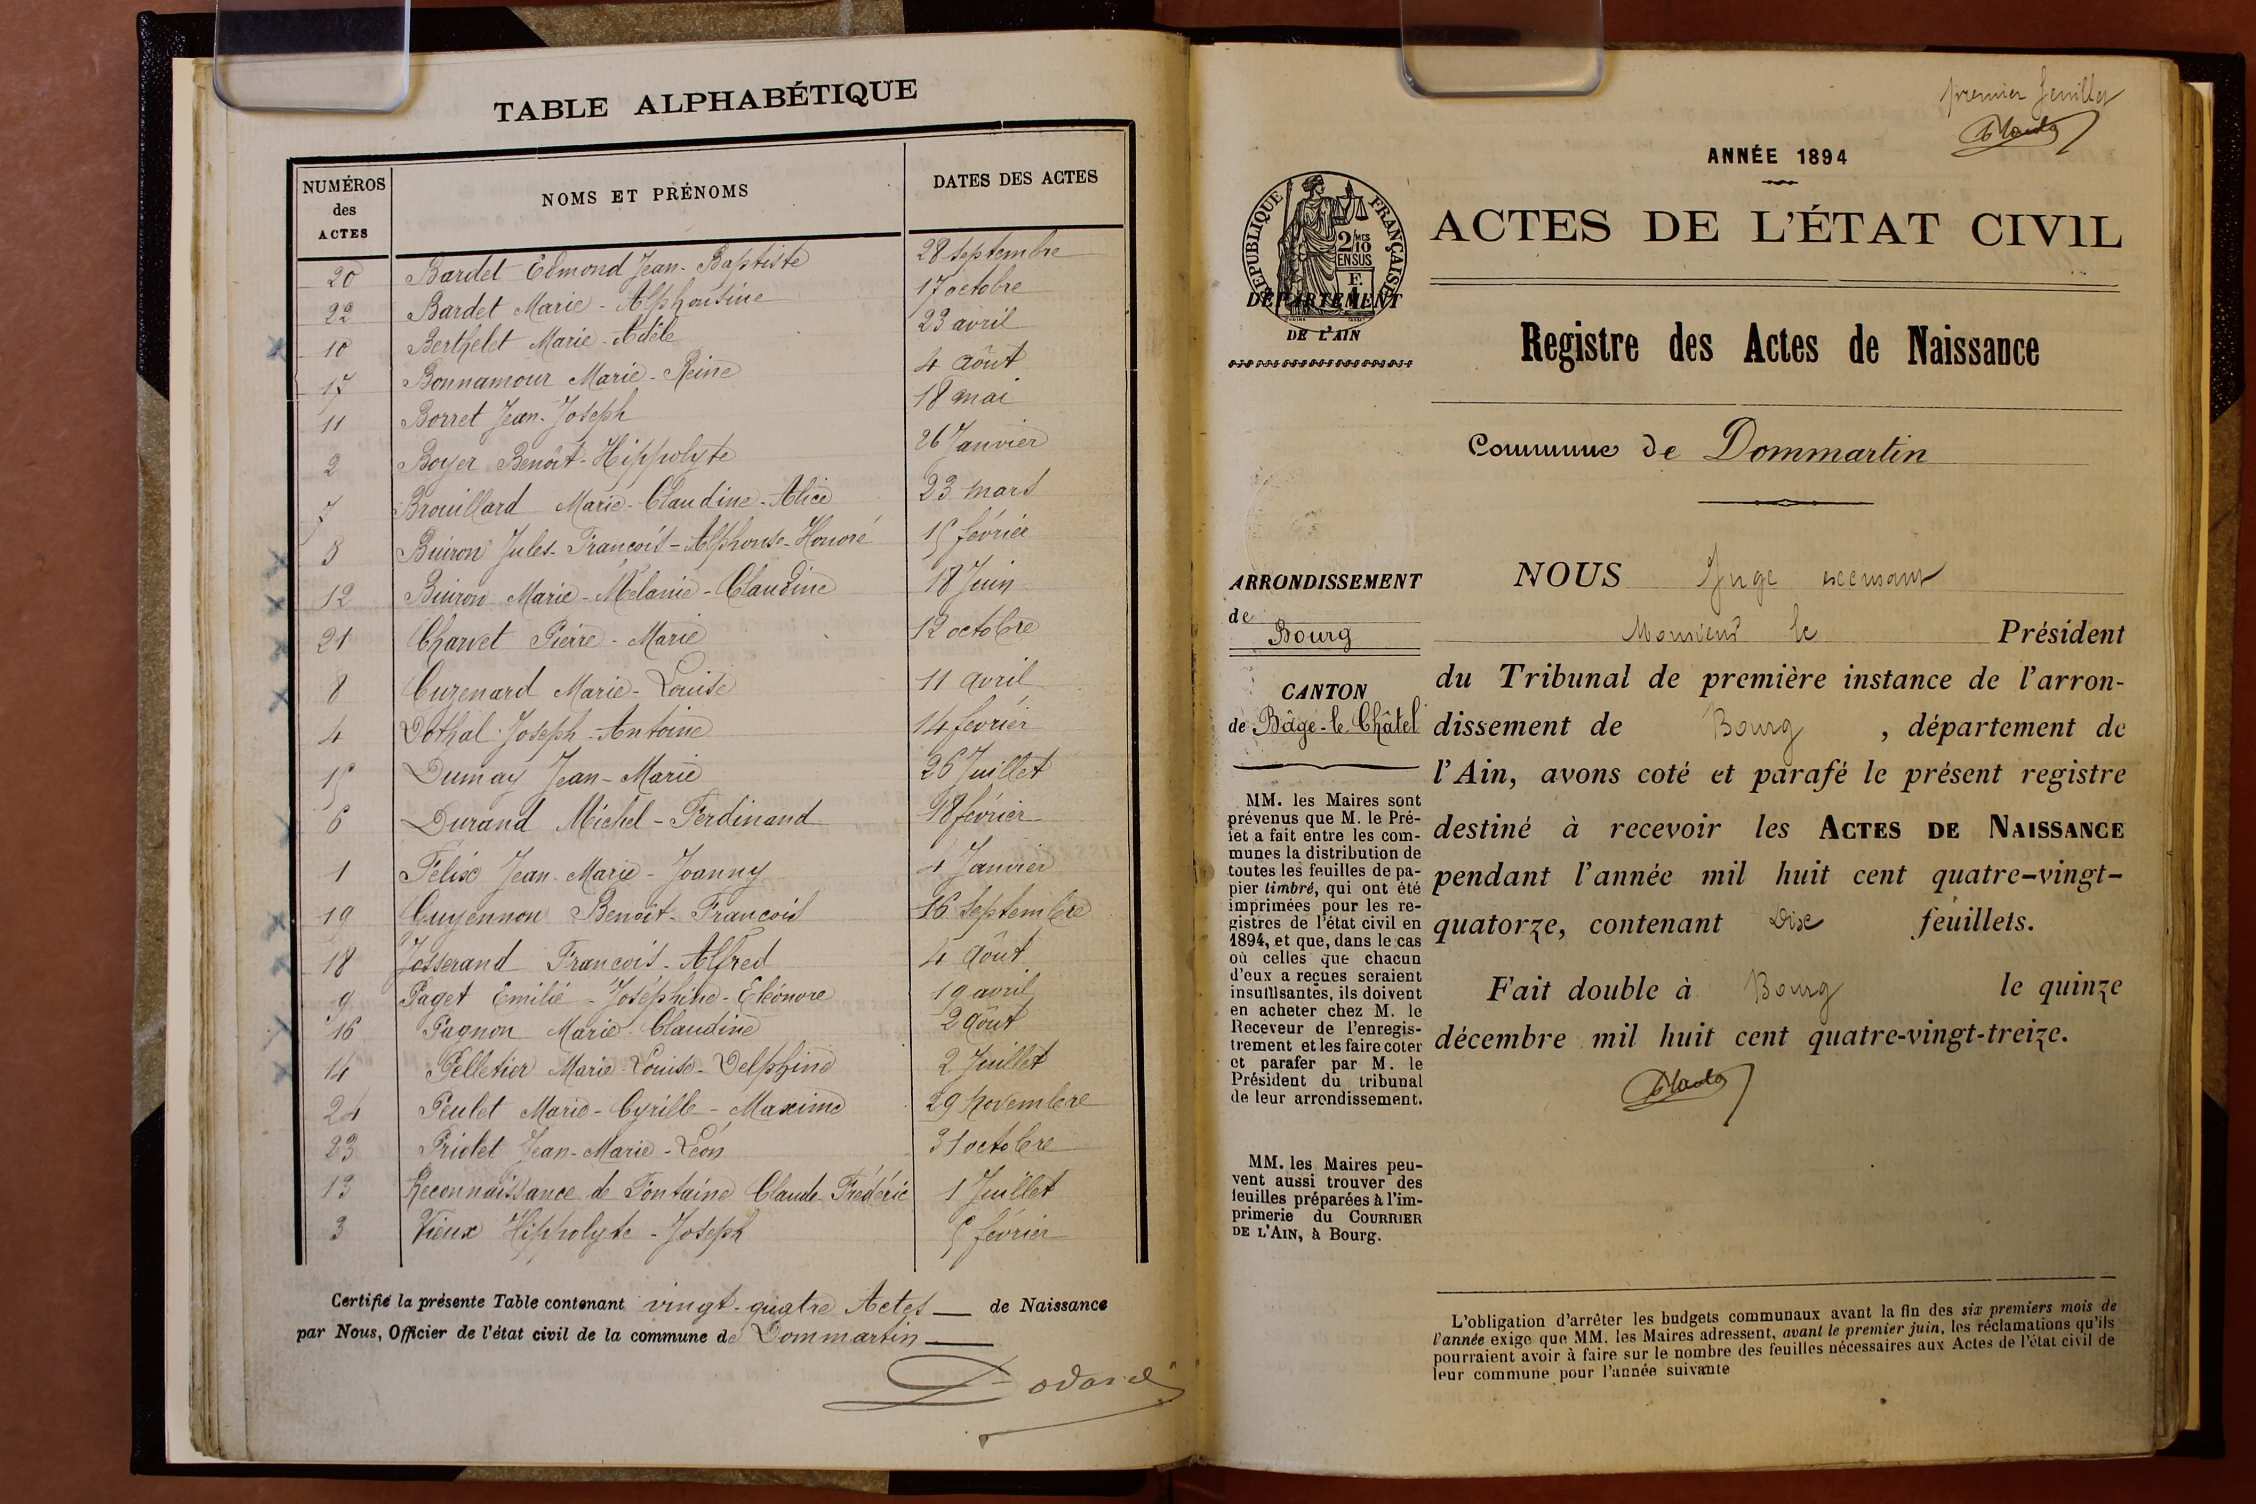 TABLE ALPHABÉTIQUE
NUMÉROS
des
ACTES
NOMS ET PRÉNOMS
DATES DES ACTES
20 Bardet Edmond Jean-Baptiste 28 septembre
22 Bardet Marie-Alphonsine 17 octobre
10 Berthelet Marie-Adèle 23 avril
17 Bonnamour Marie-Reine 4 août
11 Borret Jean-Joseph 18 mai
2 Boyer Benoît-Hippolyte 26 Janvier
7 Brouillard Marie-Claudine-Alice 23 mars
5 Buiron Jules-François-Alphonse-Honoré 15 février
12 Buiron Marie-Mélanie-Claudine 18 Juin
21 Charvet Pierre-Marie 12 octobre
8 Cuzenard Marie-Louise 11 avril
4 Dothal Joseph-Antoine 14 février
15 Dumay Jean-Marie 26 Juillet
6 Durand Michel-Ferdinand 18 février
1 Félix Jean-Marie-Joanny 4 Janvier
19 Guyennon Benoît-François 16 septembre
18 Josserand François-Alfred 4 Août
9 Paget Emilie-Joséphine-Eléonore 19 avril
16 Pagnon Marie-Claudine 2 Août
14 Pelletier Marie-Louise-Delphine 2 Juillet
24 Peulet Marie-Cyrille-Maxime 29 Novembre
23 Priolet Jean-Marie-Léon 31 octobre
13 Reconnaissance de Fontaine Claude Frédéric 1 Juillet
3 Vieux Hippolyte-Joseph 5 février
Certifié la présente Table contenant vingt-quatre Actes de Naissance
par Nous, Officier de l'état civil de la commune de Dommartin
premier feuillet
ANNÉE 1894
RÉPUBLIQUE FRANÇAISE
2/10
EN SUS
ACTES DE L'ÉTAT CIVIL
DÉPARTEMENT
DE L'AIN
Registre des Actes de Naissance
Commune de Dommartin
ARRONDISSEMENT
de
Bourg
CANTON
de Bâgé-le-Châtel
MM. les Maires sont
prévenus que M. le Pré-
fet a fait entre les com-
munes la distribution de
toutes les feuilles de pa-
pier timbré, qui ont été
imprimées pour les re-
gistres de l'état civil en
1894, et que, dans le cas
où celles que chacun
d'eux a reçues seraient
insuffisantes, ils doivent
en acheter chez M. le
Receveur de l'enregis-
trement et les faire coter
et parafer par M. le
Président du tribunal
de leur arrondissement.
MM. les Maires peu-
vent aussi trouver des
feuilles préparées à l'im-
primerie du COURRIER
DE L'AIN, à Bourg.
NOUS Juge
Monsieur le Président
du Tribunal de première instance de l'arron-
dissement de Bourg, département de
l'Ain, avons coté et parafé le présent registre
destiné à recevoir les ACTES DE NAISSANCE
pendant l'année mil huit cent quatre-vingt-
quatorze, contenant Dix feuillets.
Fait double à Bourg le quinze
décembre mil huit cent quatre-vingt-treize.
L'obligation d'arrêter les budgets communaux avant la fin des six premiers mois de
l'année exige que MM. les Maires adressent, avant le premier juin, les réclamations qu'ils
pourraient avoir à faire sur le nombre des feuilles nécessaires aux Actes de l'état civil de
leur commune pour l'année suivante